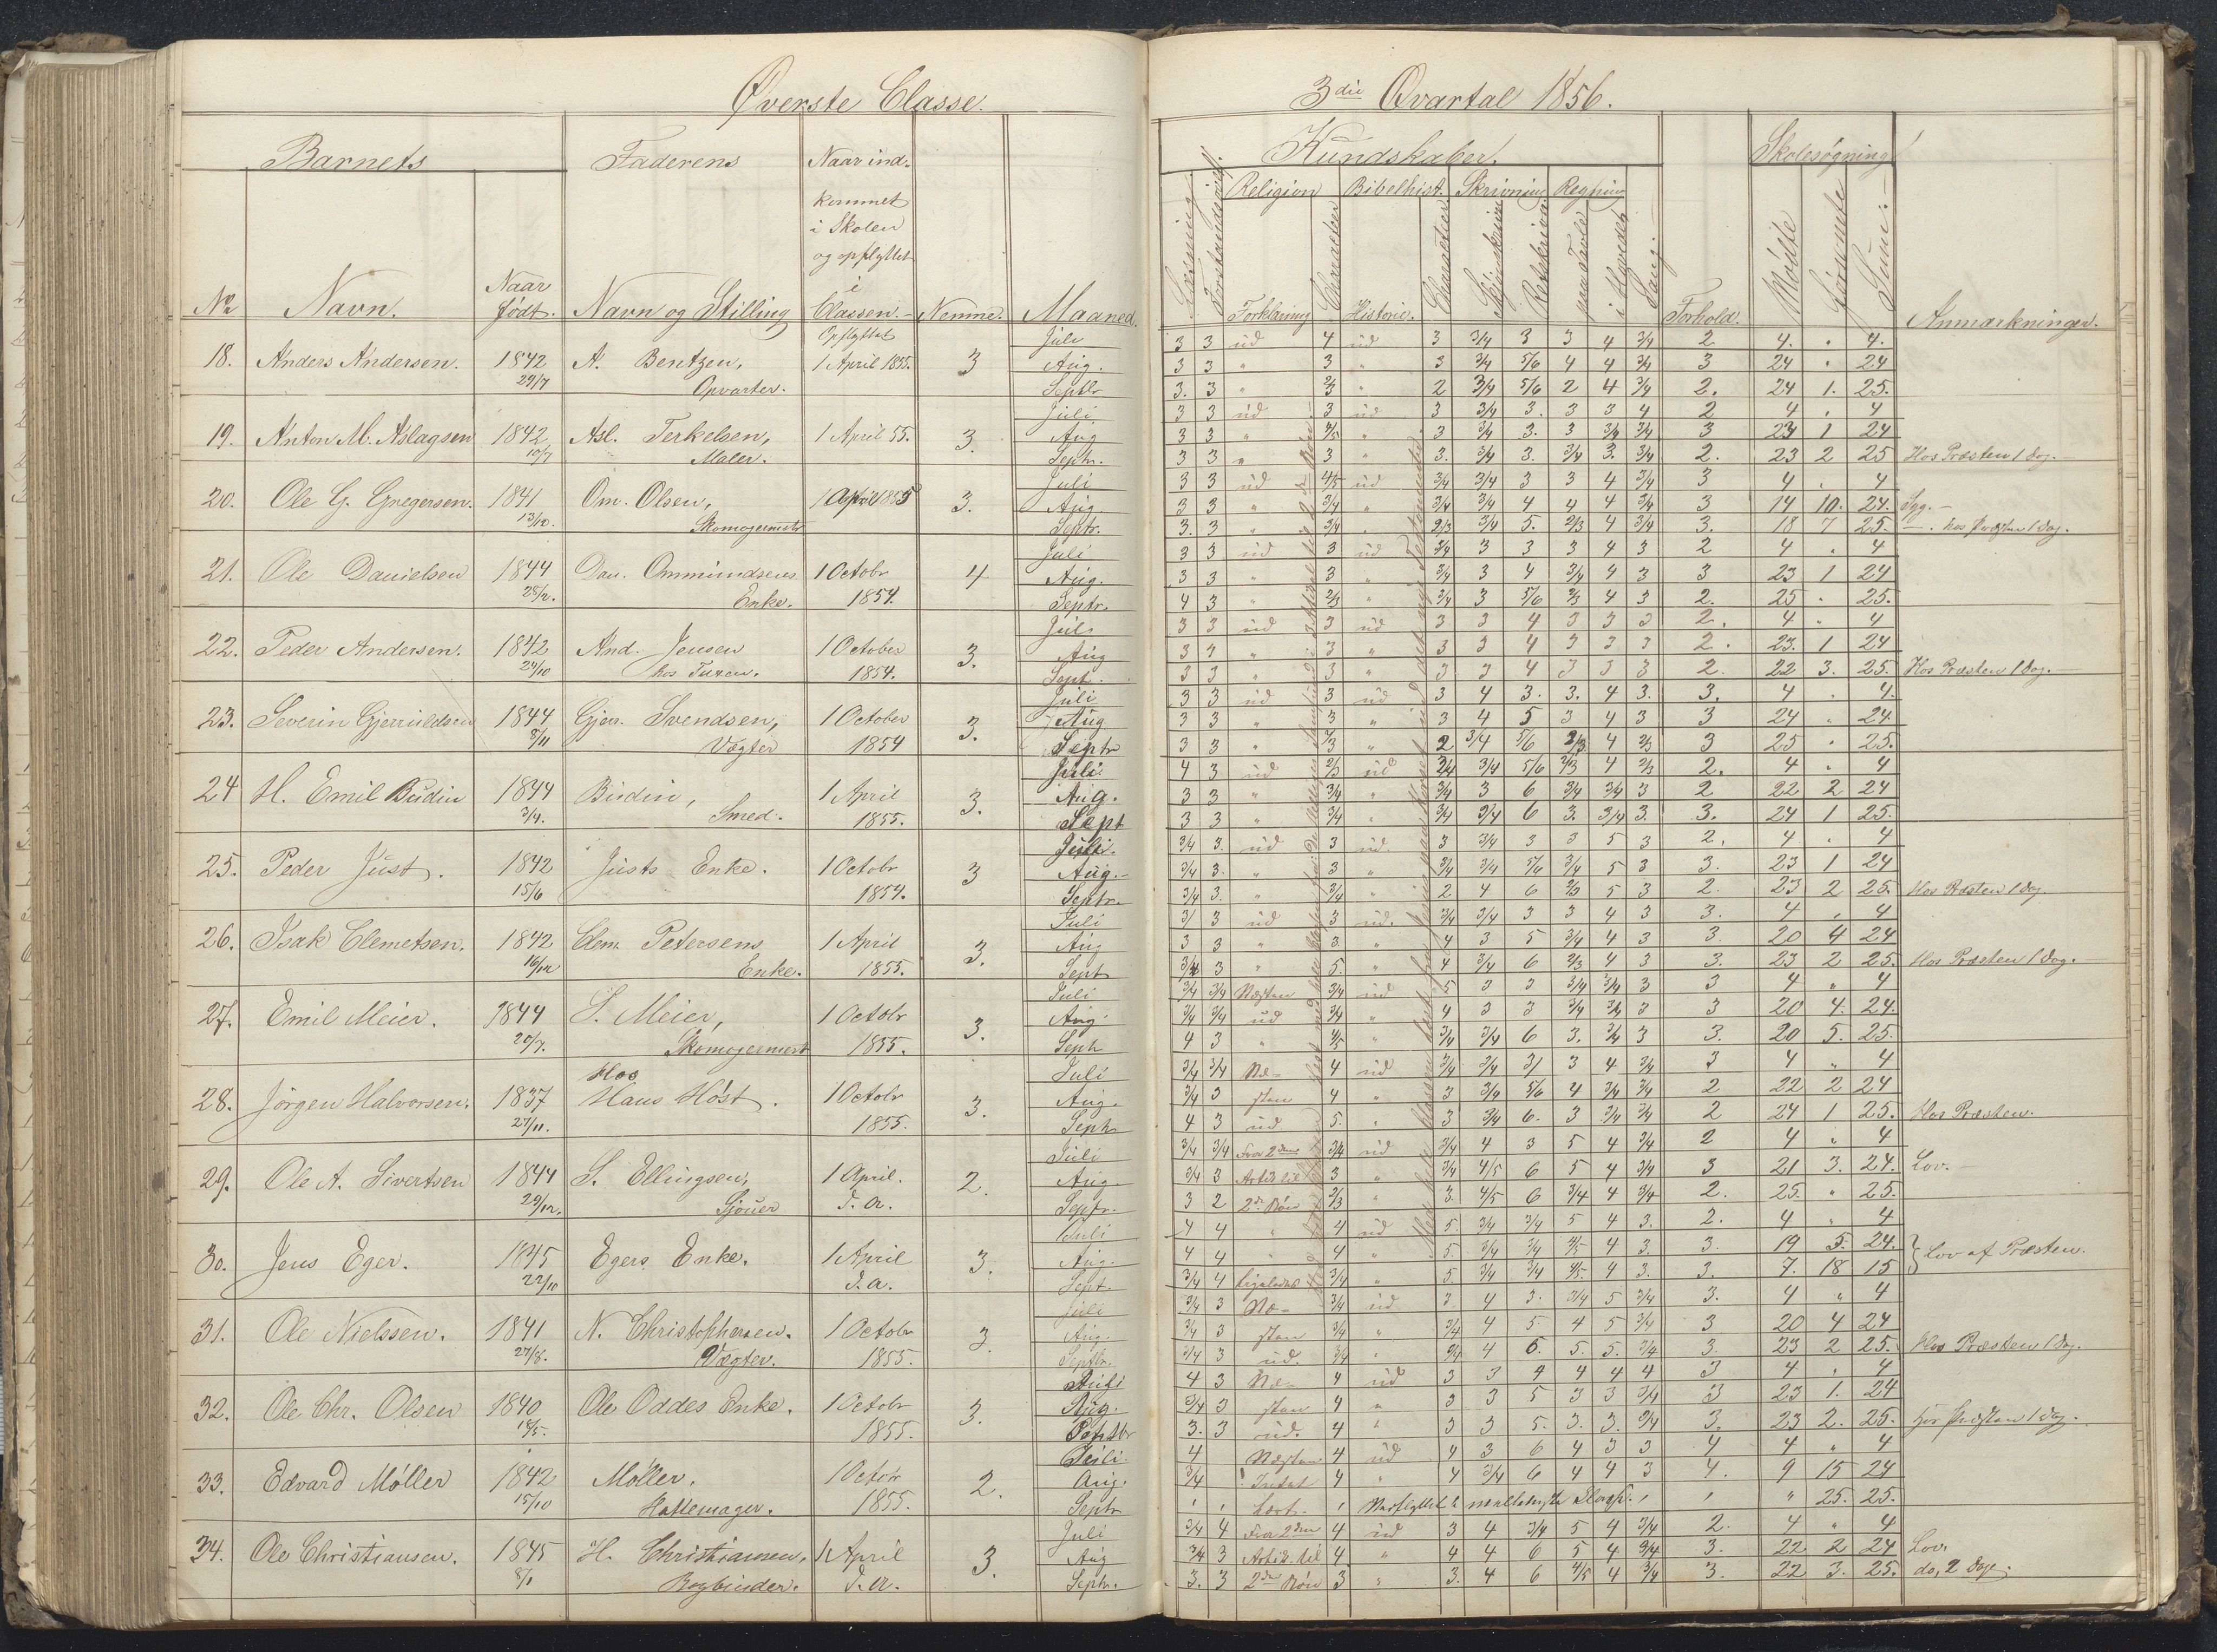 Øverste Classe.
Barnets Faderens Naar ind-
kommet
i Skolen
og opflyttet
i
No Navn. Naar født. Navn og Stilling Classen. Nemme. Maaned.
Opflyttet Juli
18. Anders Andersen. 1842 A. Bentzen, 1 April 1855. 3 Aug.
29/7 Opvarter. Septbr
Juli
19. Anton M. Aslagsen 1842 Asl. Terkelsen, 1 April 55. 3. Aug
10/7 Maler. Septr.
Juli
20. Ole G. Gregersen. 1841 Om. Olsen, 1 April 1855 3. Aug.
13/12. Skomagermstr Septr.
Juli
21. Ole Danielsen 1844 Dan. Ommundsens 1 Octobr 4 Aug.
Enke. 1854. Septr.
Juli
22. Peder Andersen. 1842 And. Jensen 1 October 3. Aug
29/10 hos Tuxen. 1854. Sept.
Juli
23. Severin Gjeruldsen 1844 Gjer. Svendsen, 1 October 3. Aug
8/11 Vægter 1854 Septr
Juli
24 H. Emil Budin 1844 Budin, 1 April 3. Aug.
3/4. Smed. 1855. Sept
Juli.
25. Peder Just. 1842 Justs Enke. 1 Octobr 3 Aug.
15/6 1854. Septr.
Juli
26. Isak Clemetsen. 1842 Clem. Petersens 1 April 3. Aug
16/12 Enke. 1855. Sept
Juli
27. Emil Meier. 1844 S. Meier, 1 Octobr 3. Aug
20/7. Skomagermest 1855. Septr
Hos Juli
28. Jörgen Halvorsen. 1837 Hans Höst. 1 Octobr 3. Aug.
27/11. 1855. Septr
Juli
29. Ole A. Sivertsen 1844 S. Ellingsen, 1 April. 2. Aug.
29/12. Sjouer d. A. Septr.
Juli
30. Jens Eger. 1845 Egers Enke. 1 April 3. Aug.
22/10 d. a. Sept.
Juli
31. Ole Nielssen. 1841 N. Christophersen. 1 Octobr 3. Aug.
27/8. Vægter. 1855. Septbr.
Juli
32. Ole Chr. Olsen 1840 Ole Oddes Enke. 1 Octobr 3. Aug.
18/5. 1855. Septbr
Juli.
33. Edvard Møller 1842 Møller, 1 Octobr 2. Aug.
15/10 Hattemager. 1855. Septr
Juli
34. Ole Christiansen. 1845 H. Christiansen, 1 April 3. Aug
8/1 Bogbinder. d. A. Septr.
3die Qvartal 1856.
Kundskaber. Skolesøgning
Religion Bibelhist. Skrivning Regning
Læsning Forstandsøvels. Forklaring Characteer Historie. Characteer Skjønskrivn. Retskrivn. paa Tavle i Hovedet Sang. Forhold. Mödte Forsømte Sum. Anmærkninger.
3 3 ud 4 ud 3 3/4 3 3 4 3/4 2 4. " 4.
3 3 " 3 " 3 3/4 5/6 4 4 3/4 3 24 " 24
3. 3 " " 2 3/4 5/6 2 4 3/4 2. 24 1. 25.
3 3 ud 3 ud 3 3/4 3. 3 3 4 2 4 . 4
3 3 " " 3 3/4 3. 3 3/4 3/4 3 23 1 24
3 3 " 3 " 3. 3/4 3. 3/4 3. 3/4 2. 23 2 25 Hos Præsten 1 Dag.
3 3 ud 4/5 ud 3/4 3/4 3 3 4 3/4 3 4 . 4
3 3 " 3/4 " 3/4 3/4 4 4 4 3/4 3 14 10. 24. Syg.
3. 3 " 3/4 " 2/3 3/4 5. 2/3 4 3/4 3. 18 7 25. — . hos Præsten 1 Dag.
3 3 ud 3 ud 3/4 3 3 3 4 3 2 4 . 4
3 3 " 3 " 3/4 3 4 3/4 4 3 3 23 1 24
4 3 " 2/3 " 3/4 3 5/6 2/3 4 3 2. 25 . 25.
3 3 ud 3 ud 3 3 4 3 3 3 2. 4 . 4
3 3 " 3 " 3 3 4 3 3 3 2. 23. 1 24
3 3 " 3 " 3 3 4 3 3 3 2. 22 3. 25. Hos Præsten 1 Dag.
3 3 ud 3 ud 3 4 3. 3. 4 3. 3. 4 . 4.
3 3 " 3 " 3 4 5 3 4 3 3 24 . 24.
3 3 " " 2 3/4 5/6 2/3 4 2/3 3 25 . 25.
4 3 ud 2/3 ud 3/4 3/4 5/6 2/3 4 2/3 2. 4 " 4
3 3 " 3/4 " 3/4 3 6 3/4 3/4 3 2 22 2 24
3 3 " 3/4 " 3/4 3/4 6 3. 3/4 3. 3. 24 1 25.
3/4 3. ud 3 ud. 3 3/4 3 3 5 3 2. 4 . 4
3/4 3. " 3 " 3/4 3/4 5/6 3/4 5 3 3. 23 1 24
3/4 3. " 3/4 " 2 4 6 2/3 5 3 2. 23 2 25. Hos Præsten 1 Dag.
3/ 3 ud 3 ud. 3/4 3/4 3 3 4 3 3. 4 . 4
3 3 " 3. " 4 3 5 3/4 4 3 3. 20 4 24
3/4 3 " 5. " 4 3/4 6 2/3 4 3 3. 23 2 25. Hos Præsten 1 Dag.
3/4 3/4 Næsten 3/4 ud 5 3 3 3/4 3/4 3 3 4 " 4
3/4 3/4 ud 3/4 " 4 3 3 3/4 3/4 3 3 20 4. 24.
4 3 " 4/5 " 3/4 3/4 6 3. 3/4 3 3. 20 5. 25.
3/4 3/4 Næ- 4 ud 3/4 3/4 3/ 3 4 3/4 3 4 " 4
3/4 3 sten 4 " 3 3/4 5/6 4 3/4 3/4 2 22 2 24
4 3 ud 5. " 3 3/4 6. 3 3/4 3/4 2 24 1 25. Hos Præsten.
3/4 3/4 Fra 2den 3/4 ud 3/4 4 3 5 4 3/4 2 4 " 4
3/4 3 Artik til 3 " 3/4 4/5 6 5 4 3/4 3 21 3. 24. Lov.
3 2 2den Bön 2/3 " 3. 4/5 6 3/4 4 3/4 2. 25. " 25.
4 4 " 4 ud 5. 3/4 3/4 5 4 3. 2. 4 . 4
4 4 " 4 " 5. 3/4 3/4 4/5 4 3. 3. 19 5. 24. } Lov af Præsten.
3/4 4 3/4 " 5. 3/4 3/4 4/5. 4 3. 3. 7. 18 15
3/4 3 Næ- 3/4 ud 3 4 3. 3/4 5 3/4 3. 4 " 4
3/4 3 sten 3/4 " 3/4 4 5. 4 5 3/4 3 20 4 24
3/4 3 ud. 3/4 " 3/4 4 6. 5. 5. 3/4 3. 23 2 25. Hos Præsten 1 Dag.
4 3 Næ- 4 ud 3 3 4 4 4 4 3 4 . 4
3/4 3 sten 4 " 3 3 5 3 3 3/4 3 23 1. 24
3. 3 ud. 4 " 3 3 5. 3. 3. 3/4 3. 23 2. 25. hos Præsten 1 Dag.
4 Næsten 4 ud 4 3 6 4 3 3 4 4 " 4
3/4 Intet 4 " 4 3/4 6 4 4 3 4. 9 15 24
Lært. Nedflyttet i mellemste Classe. " 25. 25.
3/4 4 Fra 2den 4 ud 3 4 3/4 5 4 3/4 2. 4 " 4
3/4 3 Artik. til 4 " 4 4 6 5 4 3/4 3. 22 2 24 Lov.
3. 3 2den Bön 3 " 3. 4 6 4/5 4 3/4 3. 22 3. 25. do, 2 Dage.